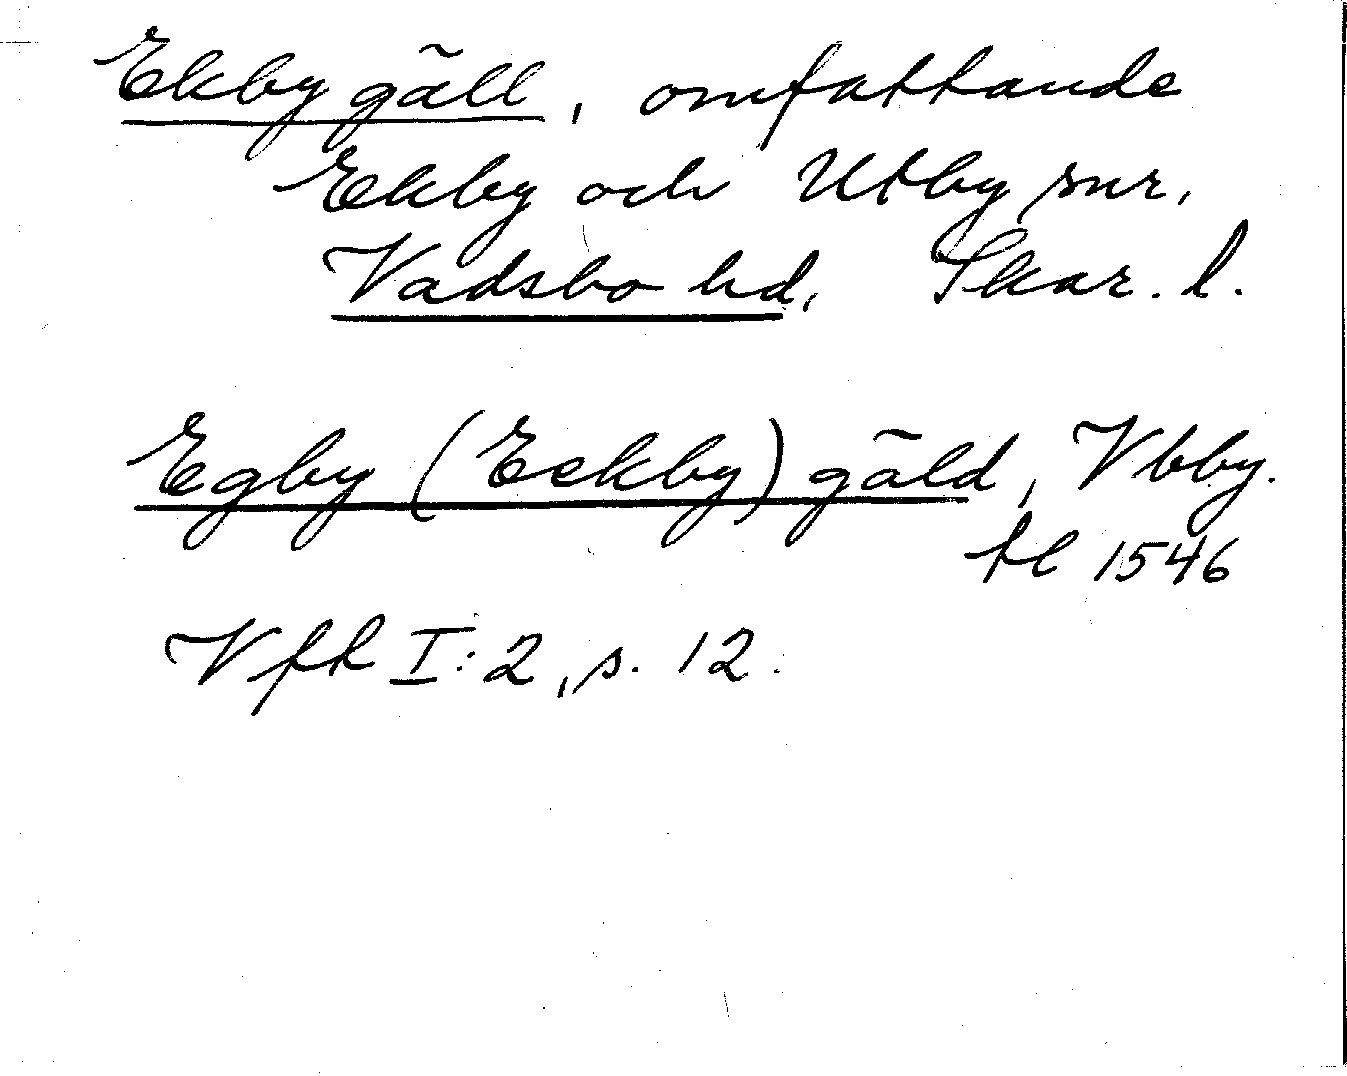 Ekby gäll, omfattande
Ekby och Utby snr,
Vadsbo hd, Skar. l.
Egby (Eckby) gäld, Vbby.
fl 1546
Vfk I:2, s. 12.